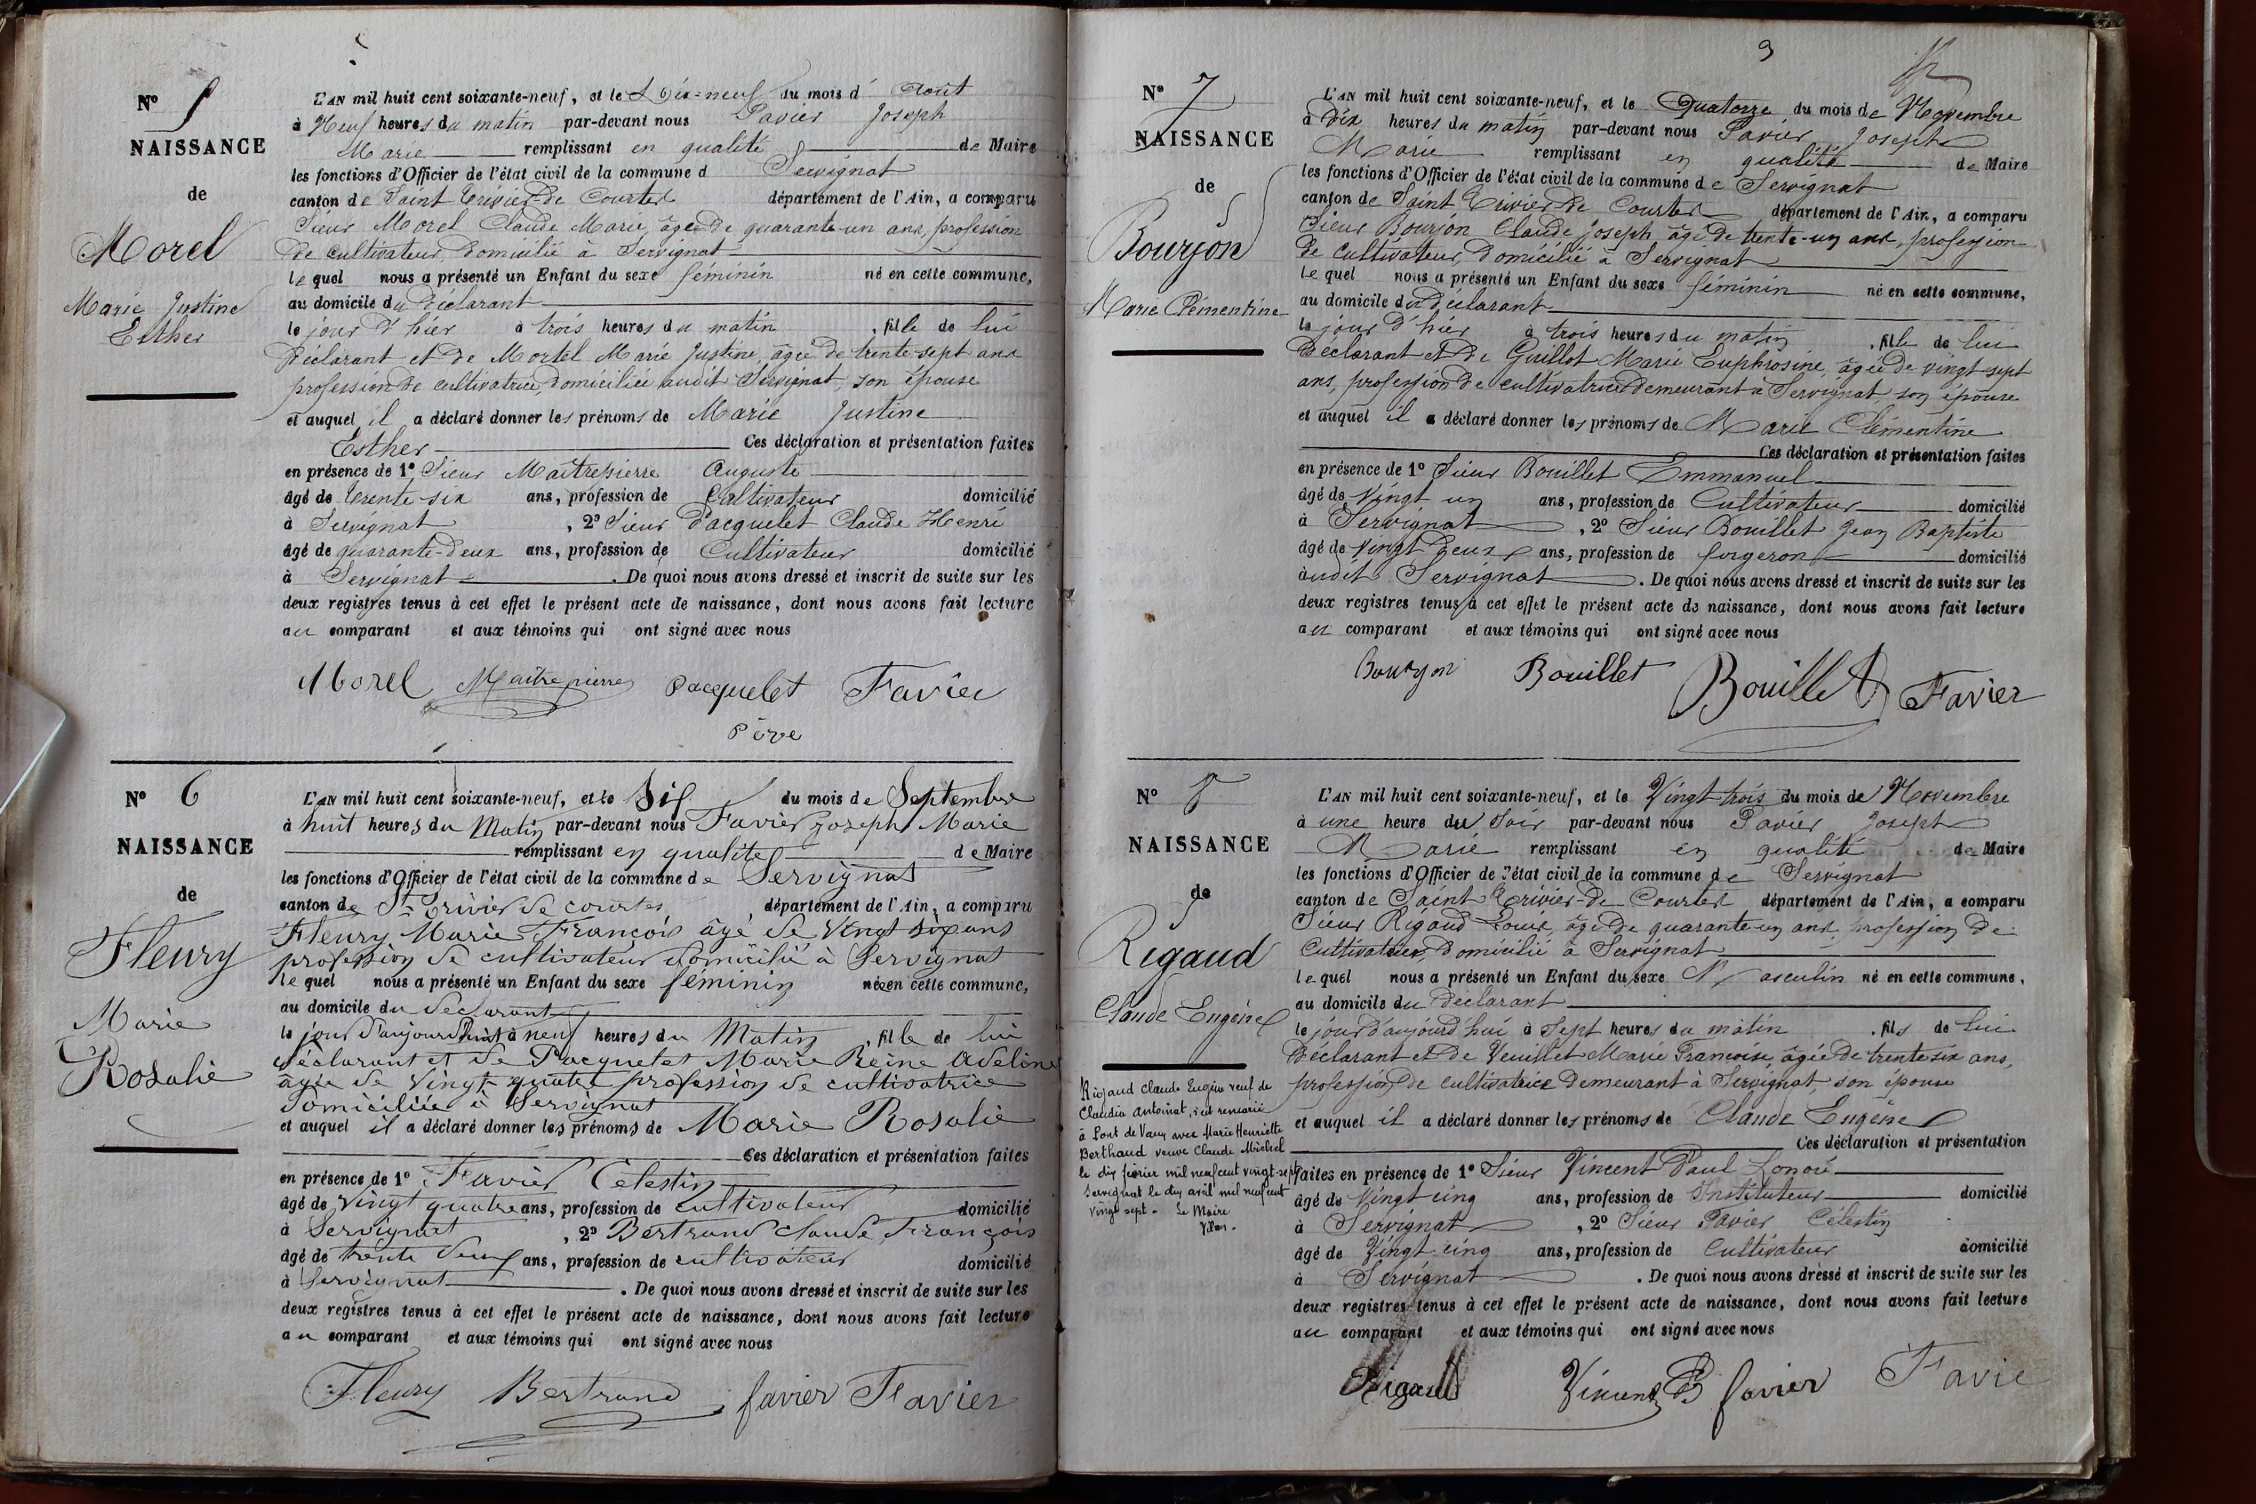 N° 5
NAISSANCE
de
Morel
Marie Justine
Esther
L'AN mil huit cent soixante-neuf, et le Dix-neuf du mois d'Août
à Neuf heures du matin par-devant nous Favier Joseph
Marie remplissant en qualité de Maire
les fonctions d'Officier de l'état civil de la commune d Servignat
canton de Saint Trivier-de Courtes département de l'Ain, a comparu
Sieur Morel Claude Marie, âgé de quarante-un ans, profession
de cultivateur, domicilié à Servignat
lequel nous a présenté un Enfant du sexe féminin né en cette commune,
au domicile du déclarant
le jour d'hier à trois heures du matin, fille de lui
déclarant et de Mortel Marie Justine, âgée de trente-sept ans
profession de cultivatrice, domiciliée audit Servignat, son épouse
et auquel il a déclaré donner les prénoms de Marie Justine
Esther Ces déclaration et présentation faites
en présence de 1° Sieur Maîtrepierre Auguste
âgé de trente-six ans, profession de Cultivateur domicilié
à Servignat, 2° Sieur Pacquelet Claude Henri
âgé de quarante-deux ans, profession de Cultivateur domicilié
à Servignat. De quoi nous avons dressé et inscrit de suite sur les
deux registres tenus à cet effet le présent acte de naissance, dont nous avons fait lecture
au comparant et aux témoins qui ont signé avec nous
Morel Maitrepierre Pacquelet Favier
Père
N° 6
NAISSANCE
de
Fleury
Marie
Rosalie
L'AN mil huit cent soixante-neuf, et le Six du mois de Septembre
à huit heures du Matin par-devant nous Favier Joseph Marie
remplissant en qualité de Maire
les fonctions d'Officier de l'état civil de la commune de Servignat
canton de St Trivier de courtes département de l'Ain, a comparu
Fleury Marie François âgé de vingt six ans
profession de cultivateur domicilié à Servignat
lequel nous a présenté un Enfant du sexe féminin né en cette commune,
au domicile du déclarant
le jour d'aujourd'hui à neuf heures du Matin, fille de lui
déclarant et de Pacquelet Marie Reine Adeline
âgée de vingt-quatre profession de cultivatrice
domiciliée à Servignat
et auquel il a déclaré donner les prénoms de Marie Rosalie
Ces déclaration et présentation faites
en présence de 1° Favier Célestin
âgé de vingt quatre ans, profession de cultivateur domicilié
à Servignat, 2° Bertrand Claude François
âgé de trente deux ans, profession de cultivateur domicilié
à Servignat. De quoi nous avons dressé et inscrit de suite sur les
deux registres tenus à cet effet le présent acte de naissance, dont nous avons fait lecture
au comparant et aux témoins qui ont signé avec nous
Fleury Bertrand favier Favier
9
N° 7
NAISSANCE
de
Bourjon
Marie Clémentine
L'AN mil huit cent soixante-neuf, et le Quatorze du mois de Novembre
à Dix heures du matin par-devant nous Favier Joseph
Marie remplissant en qualité de Maire
les fonctions d'Officier de l'état civil de la commune de Servignat
canton de Saint Trivier de Courtes département de l'Ain, a comparu
Sieur Bourjon Claude Joseph âgé de trente-un ans, profession
de cultivateur, domicilié à Servignat
lequel nous a présenté un Enfant du sexe féminin né en cette commune,
au domicile du déclarant
le jour d'hier à trois heures du matin, fille de lui
déclarant et de Guillot Marie Euphrosine, âgée de vingt sept
ans, profession de cultivatrice demeurant à Servignat son épouse
et auquel il a déclaré donner les prénoms de Marie Clémentine
Ces déclaration et présentation faites
en présence de 1° Sieur Bouillet Emmanuel
âgé de vingt un ans, profession de Cultivateur domicilié
à Servignat, 2° Sieur Bouillet Jean Baptiste
âgé de vingt deux ans, profession de forgeron domicilié
audit Servignat. De quoi nous avons dressé et inscrit de suite sur les
deux registres tenus à cet effet le présent acte de naissance, dont nous avons fait lecture
au comparant et aux témoins qui ont signé avec nous
Bourjon Bouillet Bouillet Favier
N° 8
NAISSANCE
de
Rigaud
Claude Eugène
Rigaud Claude Eugène veuf de
Claudia Antoinat, s'est remarié
à Pont de Vaux avec Marie Henriette
Berthaud veuve Claude Michel
le dix février mil neuf cent vingt-sept
Servignat le dix avril mil neuf cent
vingt sept. Le Maire
L'AN mil huit cent soixante-neuf, et le Vingt-trois du mois de Novembre
à une heure du Soir par-devant nous Favier Joseph
Marie remplissant en qualité de Maire
les fonctions d'Officier de l'état civil de la commune de Servignat
canton de Saint Trivier-de Courtes département de l'Ain, a comparu
Sieur Rigaud Louis, âgé de quarante-un ans, profession de
Cultivateur, domicilié à Servignat
lequel nous a présenté un Enfant du sexe Masculin né en cette commune,
au domicile du déclarant
le jour d'aujourd'hui à Sept heures du matin, fils de lui
déclarant et de Veuillet Marie Françoise, âgée de trente six ans,
profession de cultivatrice demeurant à Servignat, son épouse
et auquel il a déclaré donner les prénoms de Claude Eugène
Ces déclaration et présentation
faites en présence de 1° Sieur Vincent Paul Honoré
âgé de vingt cinq ans, profession de Instituteur domicilié
à Servignat, 2° Sieur Favier Célestin
âgé de Vingt cinq ans, profession de Cultivateur domicilié
à Servignat. De quoi nous avons dressé et inscrit de suite sur les
deux registres tenus à cet effet le présent acte de naissance, dont nous avons fait lecture
au comparant et aux témoins qui ont signé avec nous
Rigaud Vincent favier Favie